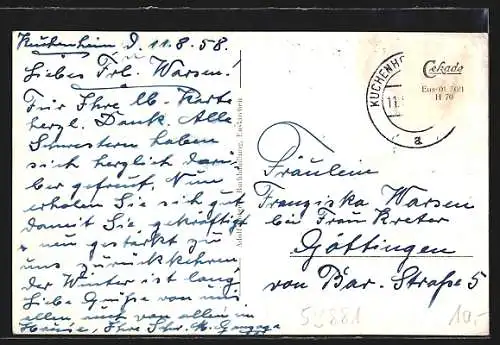 Kuchenheim d. 11.8.58.
Liebes Frl. Warsen!
Für Ihre lb. Karte
herzl. Dank. Alle
Schwestern haben
sich herzlich darü-
ber gefreut. Nun
erholen Sie sich gut
damit Sie gekräftigt
u neu gestärkt zu
uns zurückkehren,
der Winter ist lang,
Liebe Grüße von uns
allen auch von allen im
Hause, Ihre Schr. M.
Buchhandlung, Euskirchen
KUCHENH
11.
a
Cekade
Eus 01
H 70
Fräulein
Franziska Warsen
bei Frau Kreter
Göttingen
von Bar-Straße 5
52881
10,-